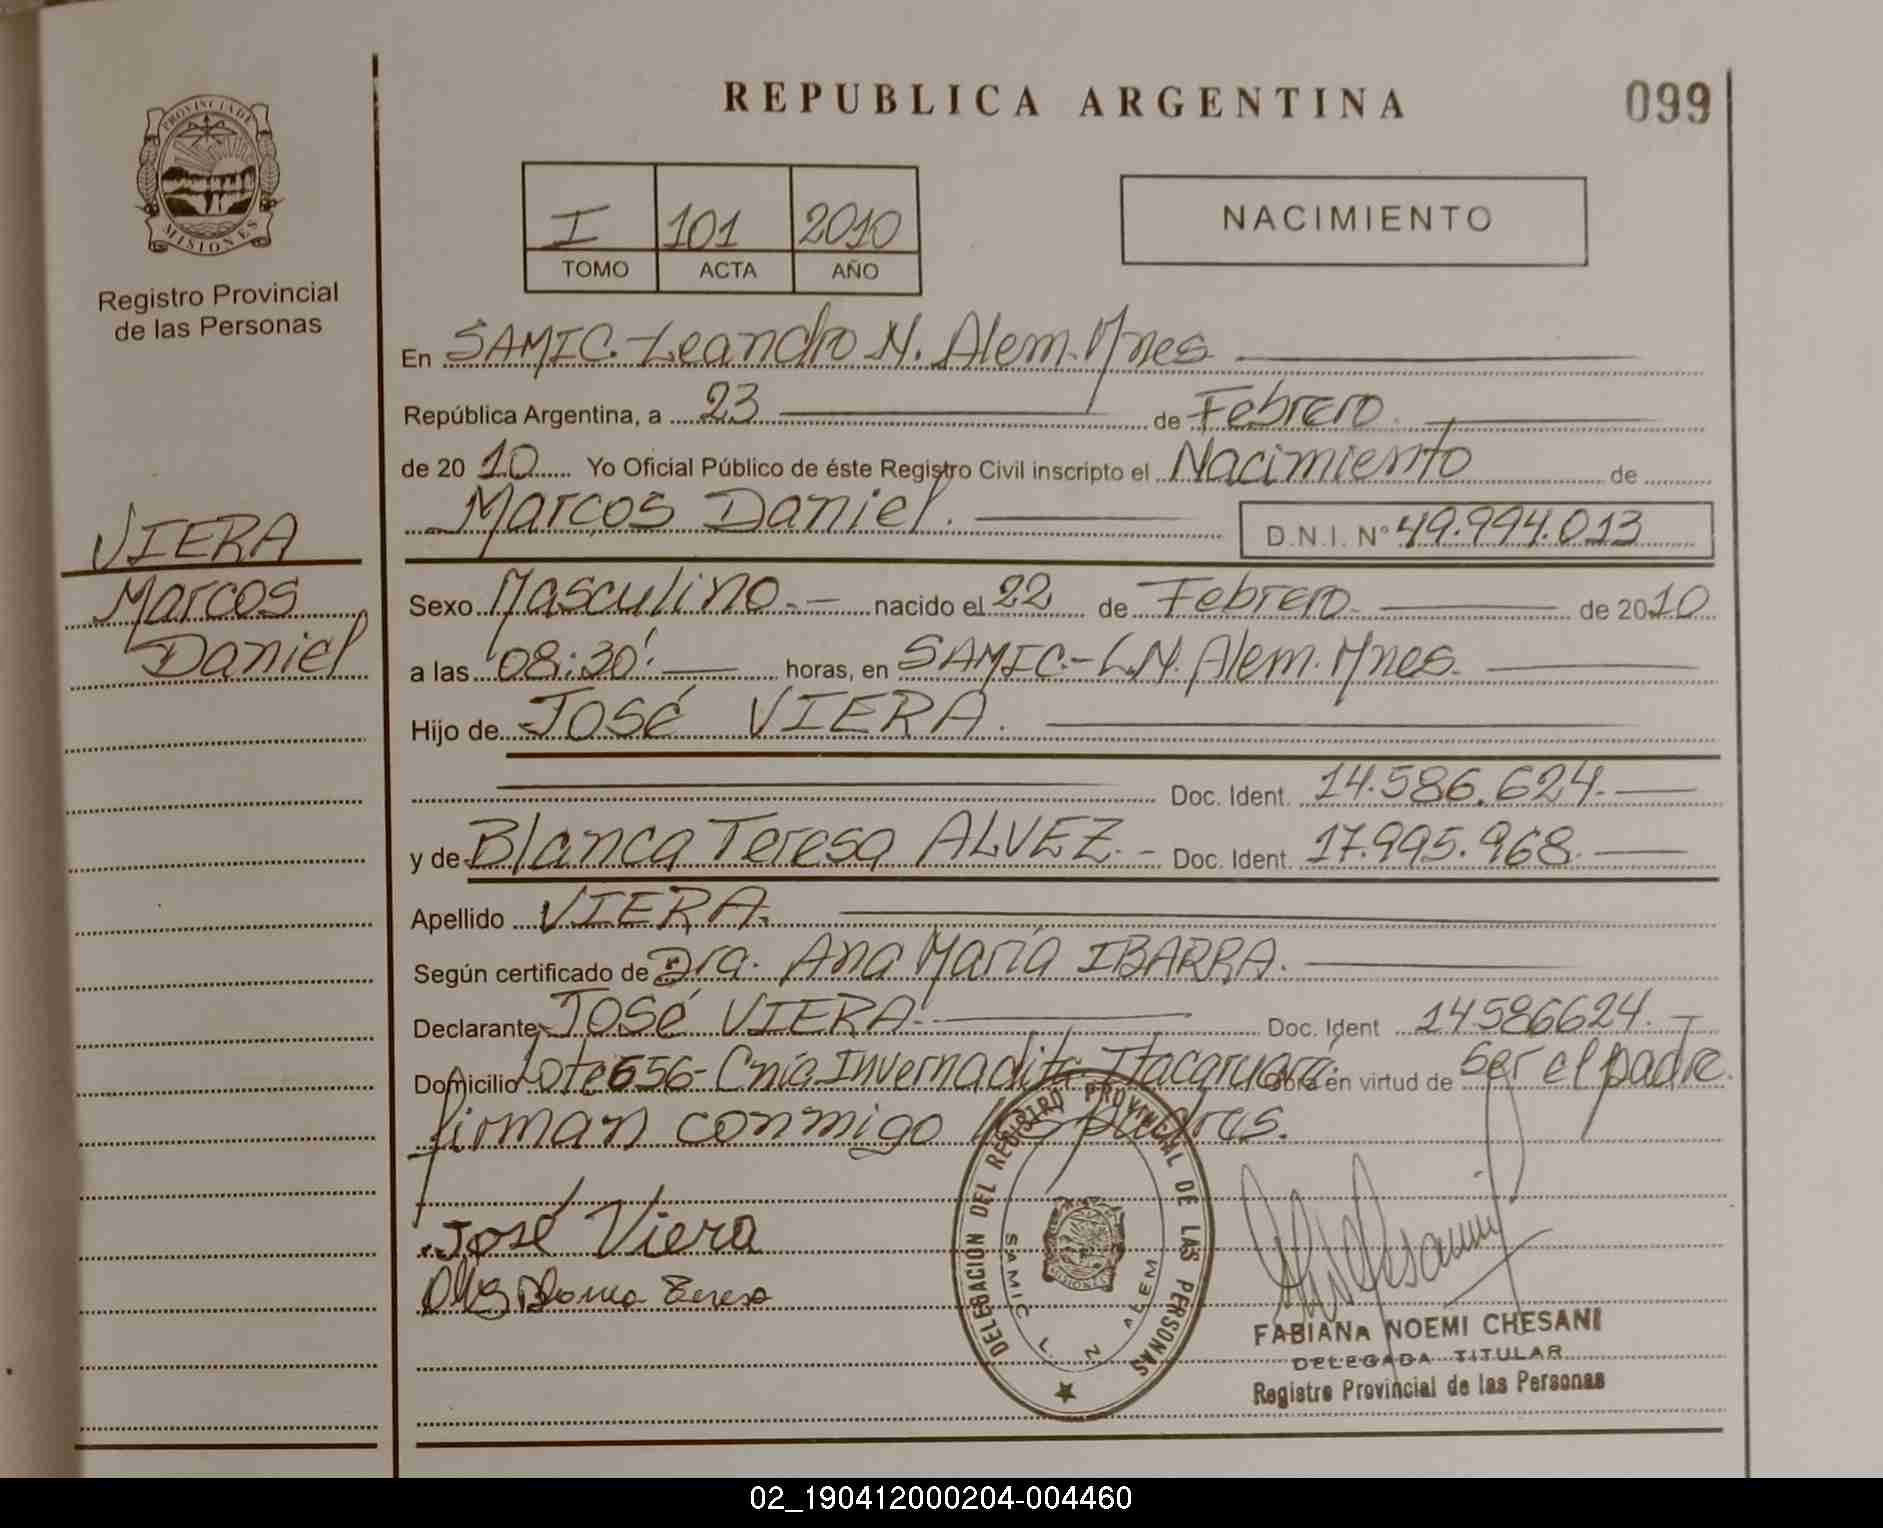 REPUBLICA ARGENTINA
099
PROVINCIA DE MISIONES
Registro Provincial
de las Personas
I 101 2010
TOMO ACTA AÑO
NACIMIENTO
En SAMIC. Leandro N. Alem. Mnes
República Argentina, a 23 de Febrero
de 2010 Yo Oficial Público de éste Registro Civil inscripto el Nacimiento de
Marcos Daniel.
D.N.I. Nº 49.994.013
VIERA
Marcos
Daniel
Sexo Masculino.- nacido el 22 de Febrero. de 2010
a las 08:30'. horas, en SAMIC.- L.N. Alem. Mnes.
Hijo de José VIERA.
Doc. Ident. 14.586.624.
y de Blanca Teresa ALVEZ.- Doc. Ident. 17.995.968.
Apellido VIERA.
Según certificado de Dra. Ana María IBARRA.
Declarante José VIERA. Doc. Ident 14586624.
Domicilio Lote 656- Cnia Invernadita- Itacaruaré. Obra en virtud de Ser el padre
firman conmigo los padres.
José Viera
Blanca Teresa
DELEGACION DEL REGISTRO PROVINCIAL DE LAS PERSONAS
SAMIC L. N ALEM
MISIONES
FABIANA NOEMI CHESANI
DELEGADA TITULAR
Registro Provincial de las Personas
02_190412000204-004460